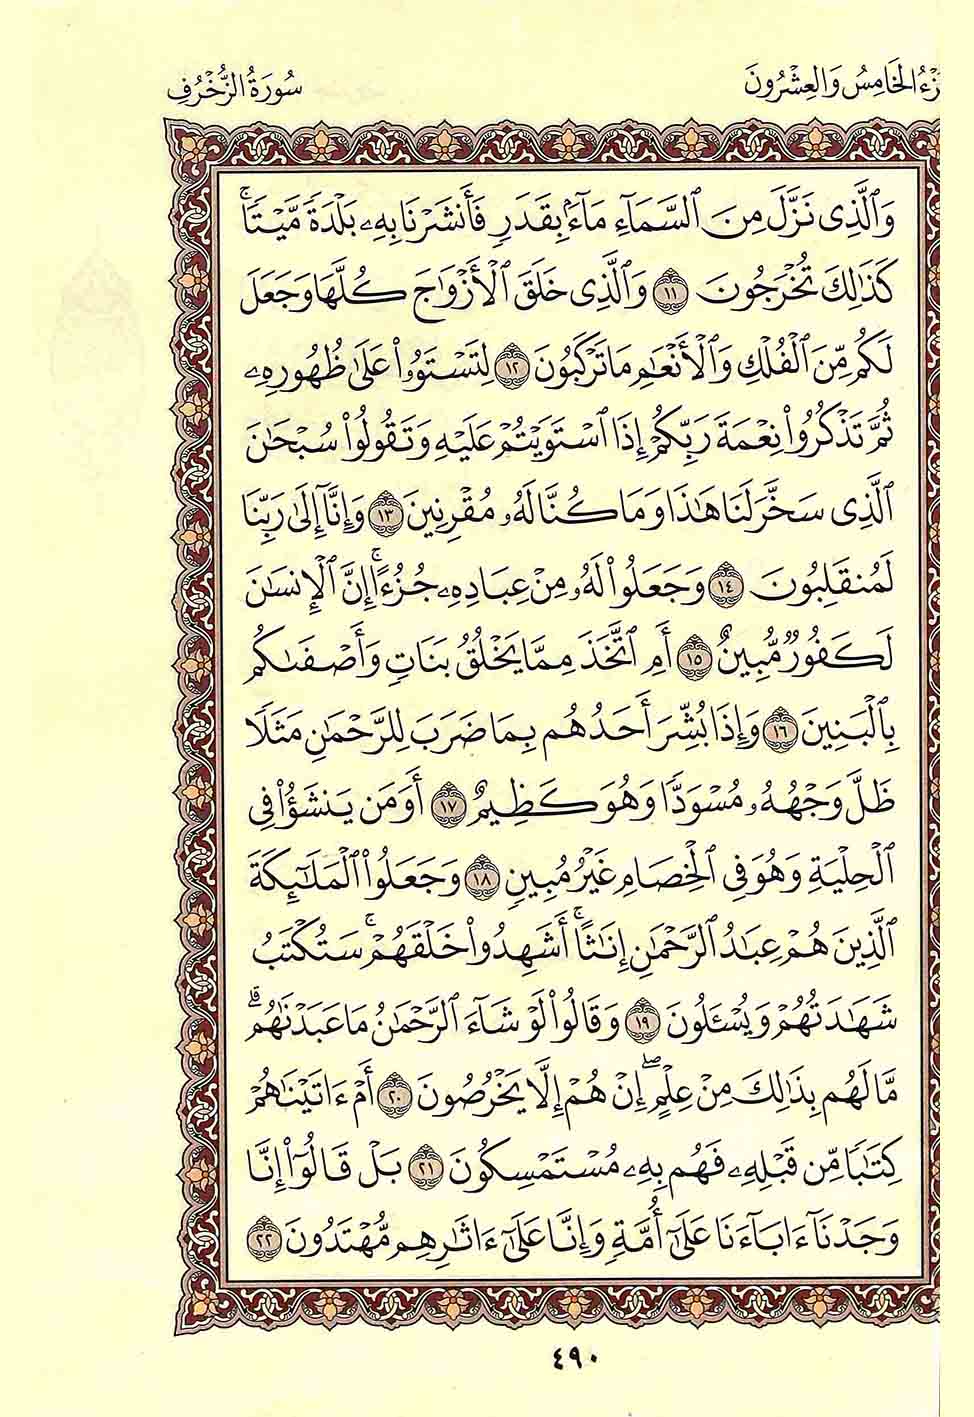 زْءُ الْخَامِسُ وَالْعِشْرُونَ
سُورَةُ الزُّخْرُفِ
وَٱلَّذِى نَزَّلَ مِنَ ٱلسَّمَآءِ مَآءًۢ بِقَدَرٍ فَأَنشَرْنَا بِهِۦ بَلْدَةً مَّيْتًا ۚ
كَذَٰلِكَ تُخْرَجُونَ ١١ وَٱلَّذِى خَلَقَ ٱلْأَزْوَٰجَ كُلَّهَا وَجَعَلَ
لَكُم مِّنَ ٱلْفُلْكِ وَٱلْأَنْعَٰمِ مَا تَرْكَبُونَ ١٢ لِتَسْتَوُۥا۟ عَلَىٰ ظُهُورِهِۦ
ثُمَّ تَذْكُرُوا۟ نِعْمَةَ رَبِّكُمْ إِذَا ٱسْتَوَيْتُمْ عَلَيْهِ وَتَقُولُوا۟ سُبْحَٰنَ
ٱلَّذِى سَخَّرَ لَنَا هَٰذَا وَمَا كُنَّا لَهُۥ مُقْرِنِينَ ١٣ وَإِنَّآ إِلَىٰ رَبِّنَا
لَمُنقَلِبُونَ ١٤ وَجَعَلُوا۟ لَهُۥ مِنْ عِبَادِهِۦ جُزْءًا ۚ إِنَّ ٱلْإِنسَٰنَ
لَكَفُورٌ مُّبِينٌ ١٥ أَمِ ٱتَّخَذَ مِمَّا يَخْلُقُ بَنَاتٍ وَأَصْفَىٰكُم
بِٱلْبَنِينَ ١٦ وَإِذَا بُشِّرَ أَحَدُهُم بِمَا ضَرَبَ لِلرَّحْمَٰنِ مَثَلًا
ظَلَّ وَجْهُهُۥ مُسْوَدًّا وَهُوَ كَظِيمٌ ١٧ أَوَمَن يَنشَؤُا۟ فِى
ٱلْحِلْيَةِ وَهُوَ فِى ٱلْخِصَامِ غَيْرُ مُبِينٍ ١٨ وَجَعَلُوا۟ ٱلْمَلَٰٓئِكَةَ
ٱلَّذِينَ هُمْ عِبَٰدُ ٱلرَّحْمَٰنِ إِنَٰثًا ۚ أَشَهِدُوا۟ خَلْقَهُمْ ۚ سَتُكْتَبُ
شَهَٰدَتُهُمْ وَيُسْـَٔلُونَ ١٩ وَقَالُوا۟ لَوْ شَآءَ ٱلرَّحْمَٰنُ مَا عَبَدْنَٰهُم ۗ
مَّا لَهُم بِذَٰلِكَ مِنْ عِلْمٍ ۖ إِنْ هُمْ إِلَّا يَخْرُصُونَ ٢٠ أَمْ ءَاتَيْنَٰهُمْ
كِتَٰبًا مِّن قَبْلِهِۦ فَهُم بِهِۦ مُسْتَمْسِكُونَ ٢١ بَلْ قَالُوٓا۟ إِنَّا
وَجَدْنَآ ءَابَآءَنَا عَلَىٰٓ أُمَّةٍ وَإِنَّا عَلَىٰٓ ءَاثَٰرِهِم مُّهْتَدُونَ ٢٢
٤٩٠